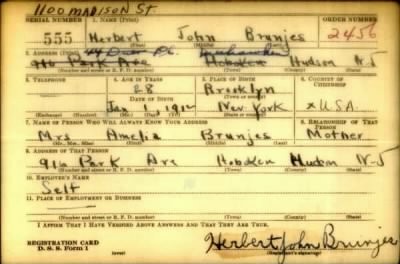 1100 MADISON ST.
SERIAL NUMBER 1. NAME (Print) ORDER NUMBER
555 Herbert John Brunjes 2456
(First) (Middle) (Last)
2. ADDRESS (Print)
916 Park Ave Hoboken Hudson N-J
(Number and street or R. F. D. number) (Town) (County) (State)
3. TELEPHONE 4. AGE IN YEARS 5. PLACE OF BIRTH 6. COUNTRY OF CITIZENSHIP
28 Brooklyn
DATE OF BIRTH (Town or county)
Jan 1 1912 New York x U.S.A.
(Exchange) (Number) (Mo.) (Day) (Yr.) (State or country)
7. NAME OF PERSON WHO WILL ALWAYS KNOW YOUR ADDRESS 8. RELATIONSHIP OF THAT PERSON
Mrs Amelia Brunjes Mother
(Mr., Mrs., Miss) (First) (Middle) (Last)
9. ADDRESS OF THAT PERSON
916 Park Ave Hoboken Hudson N-J
(Number and street or R. F. D. number) (Town) (County) (State)
10. EMPLOYER'S NAME
Self
11. PLACE OF EMPLOYMENT OR BUSINESS
(Number and street or R. F. D. number) (Town) (County) (State)
I AFFIRM THAT I HAVE VERIFIED ABOVE ANSWERS AND THAT THEY ARE TRUE.
REGISTRATION CARD
D. S. S. Form 1 (over) Herbert John Brunjes
(Registrant's signature)